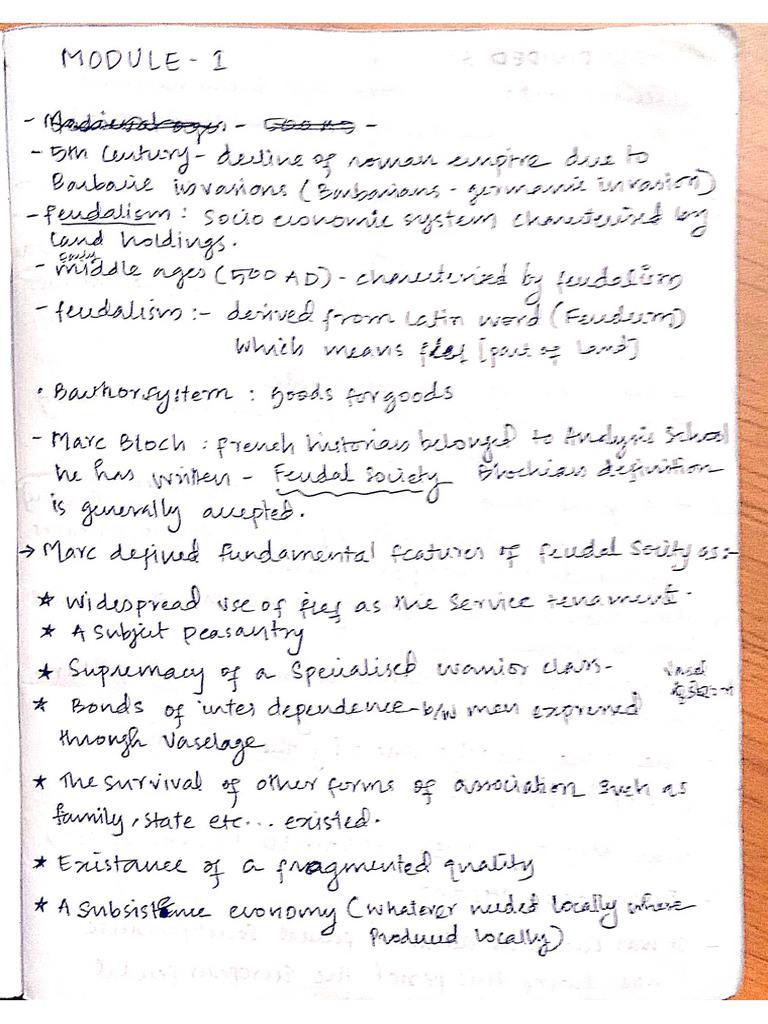 MODULE - 1
- 5th Century - decline of roman empire due to
Barbaric invasions (Barbarians - germanic invasion)
- feudalism : Socio economic system charcterised by
land holdings.
early
- middle ages (500 AD) - charcterized by feudalism
- feudalism :- derived from Latin word (Feudum)
which means fief [part of land]
• Barthor system : Goods for goods
- Marc Bloch : french historian belonged to Analysis School
he has written - Feudal Society Blochian definition
is generally accepted.
→ Marc defined fundamental features of feudal Soity as:-
* Widespread use of fief as the Service tenament.
* A Subject peasantry
* Supremacy of a Specialised warrior class -
Vasel
* Bonds of inter dependence b/w men expressed
through Vaselage
* The survival of other forms of association such as
family, state etc... existed.
* Existance of a fragmented quality
* A Subsistence economy (whatever needed locally where
Produced locally)